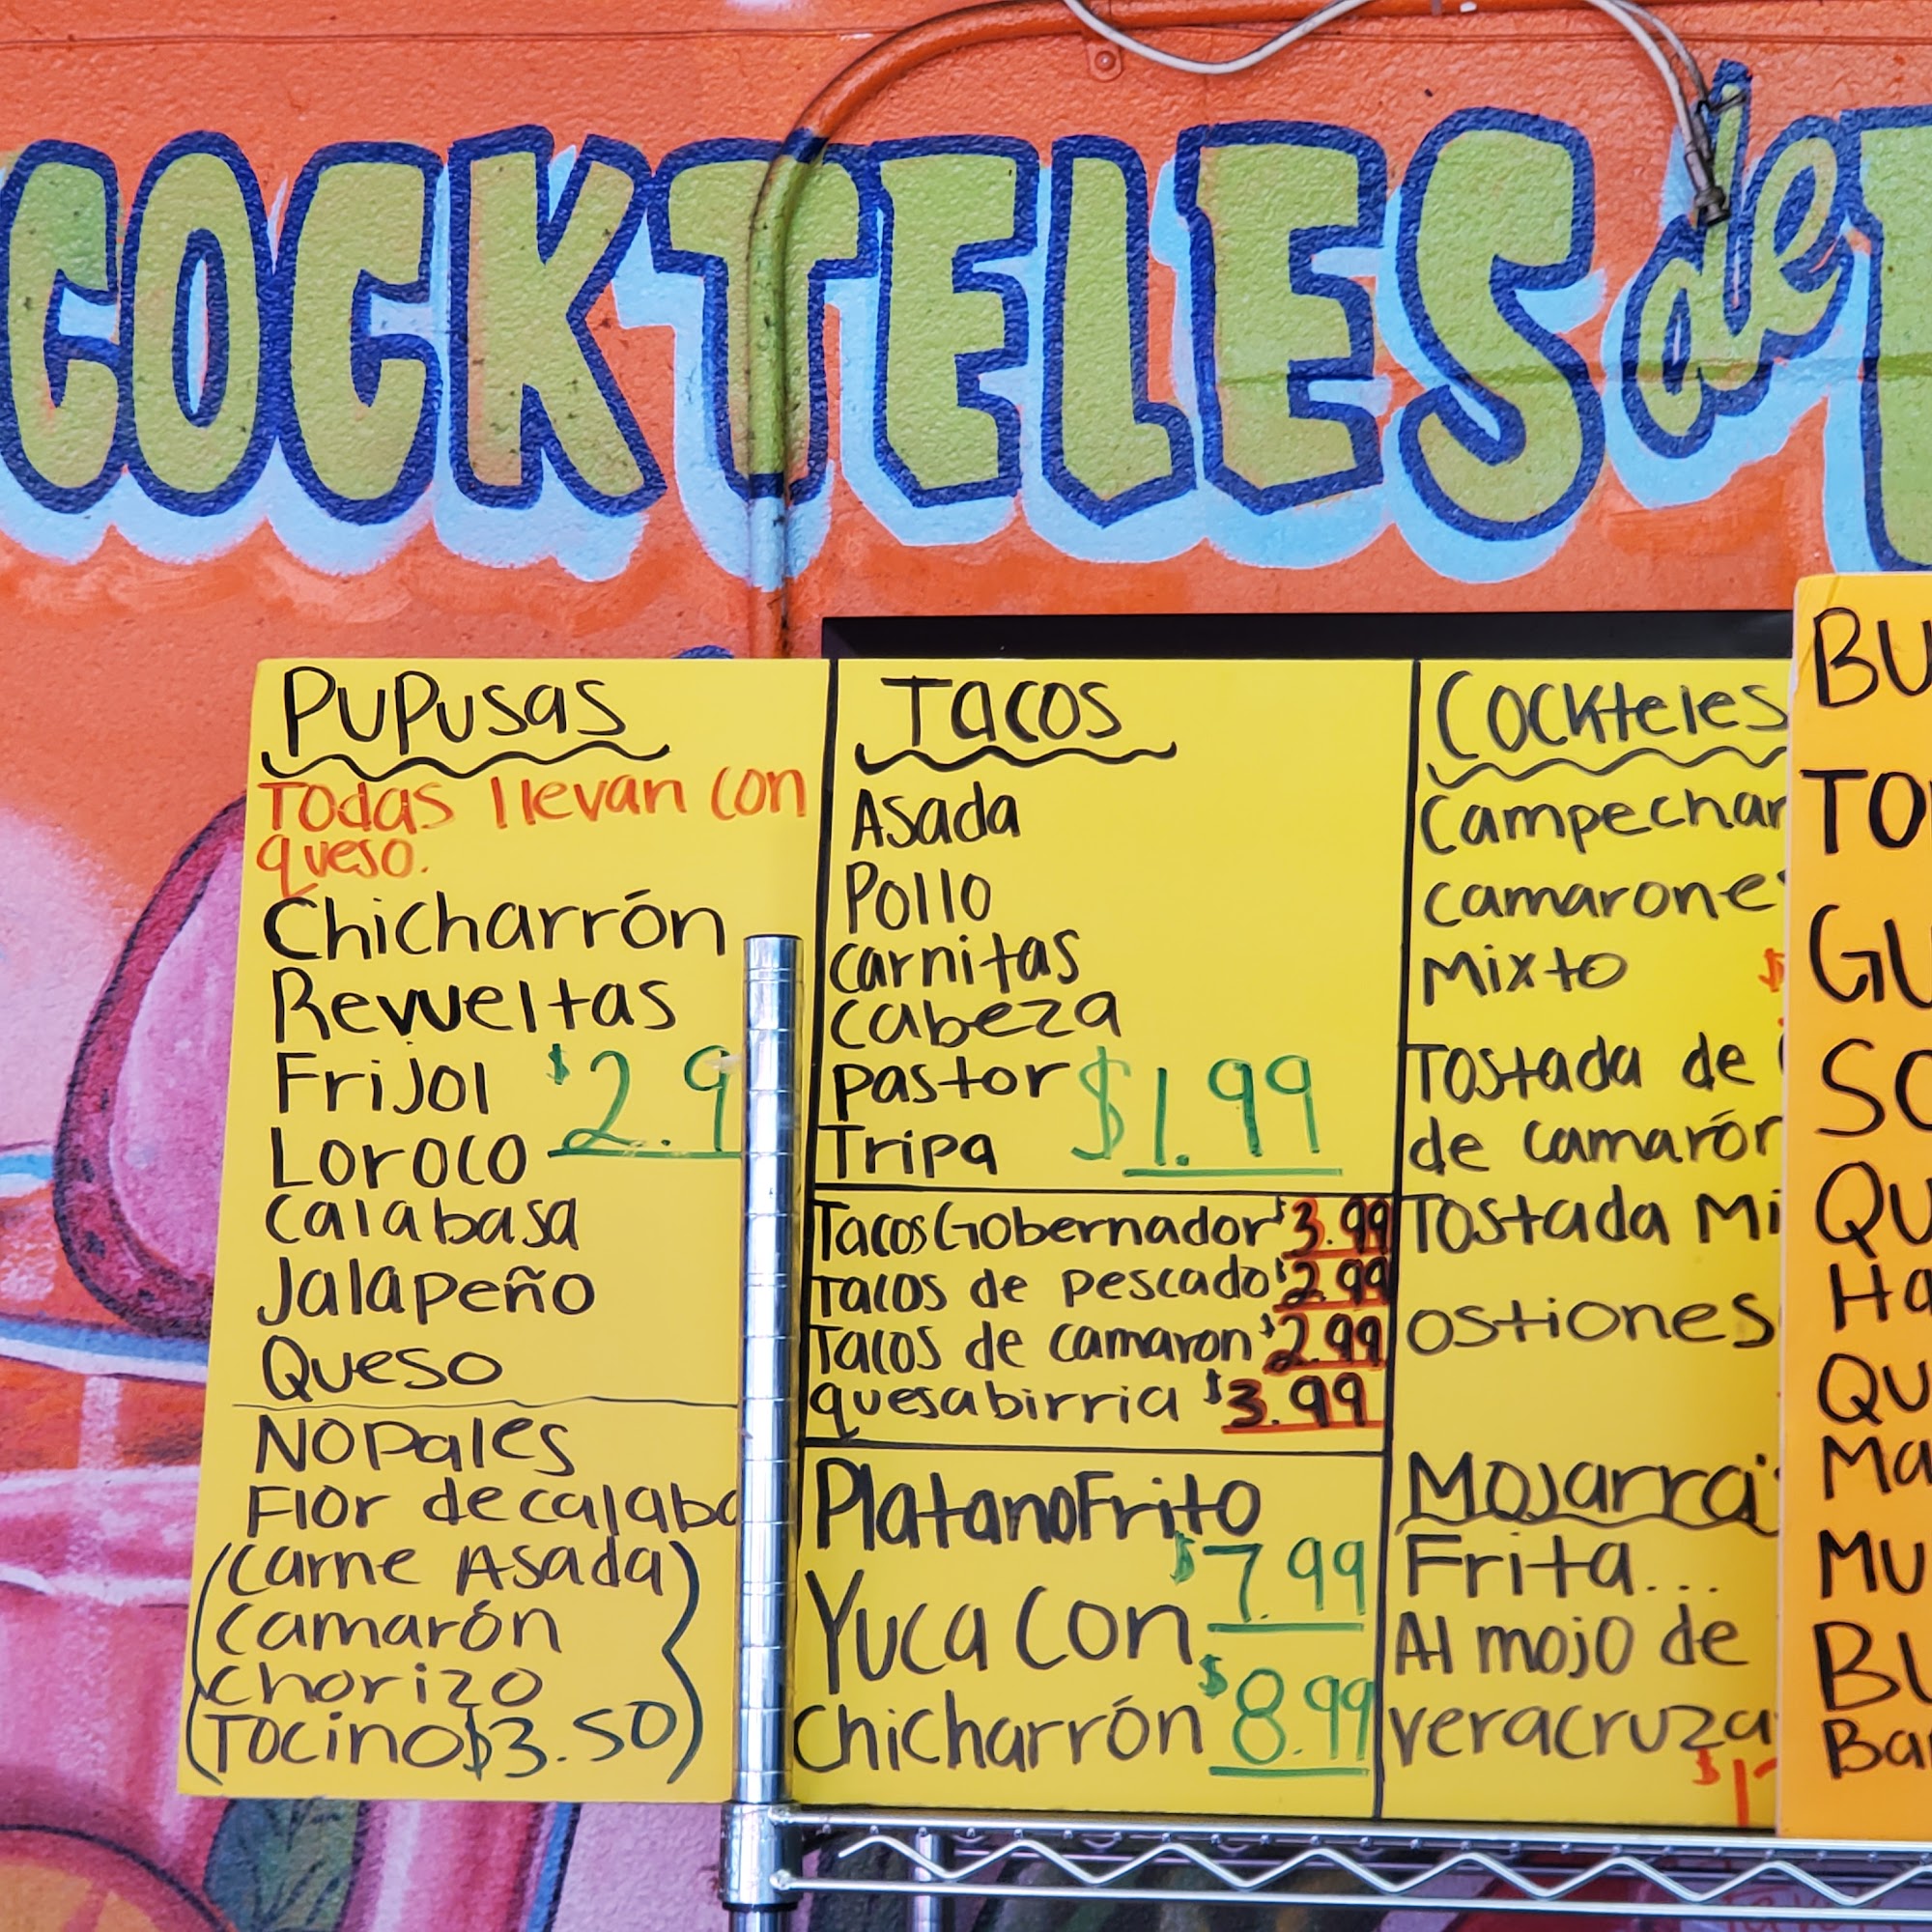 COCKTELES de
PUPUSAS
Todas llevan con
queso.
Chicharrón
Revueltas
Frijol $2.9
Loroco
Calabasa
Jalapeño
Queso
Nopales
Flor de calaba
(Carne Asada)
Camarón
Chorizo
Tocino $3.50)
Tacos
Asada
Pollo
Carnitas
Cabeza
pastor $1.99
Tripa
Tacos Gobernador $3.99
Tacos de pescado $2.99
Tacos de camaron $2.99
quesabirria $3.99
Platano Frito
$7.99
Yuca con
Chicharrón $8.99
Cockteles
Campechan
Camarones
Mixto $
Tostada de
de camarón
Tostada Mi
ostiones
Mojarra
Frita...
Al mojo de
veracruza
$1
BU
TO
GU
SO
QU
Ha
QU
Ma
MU
BU
Ba